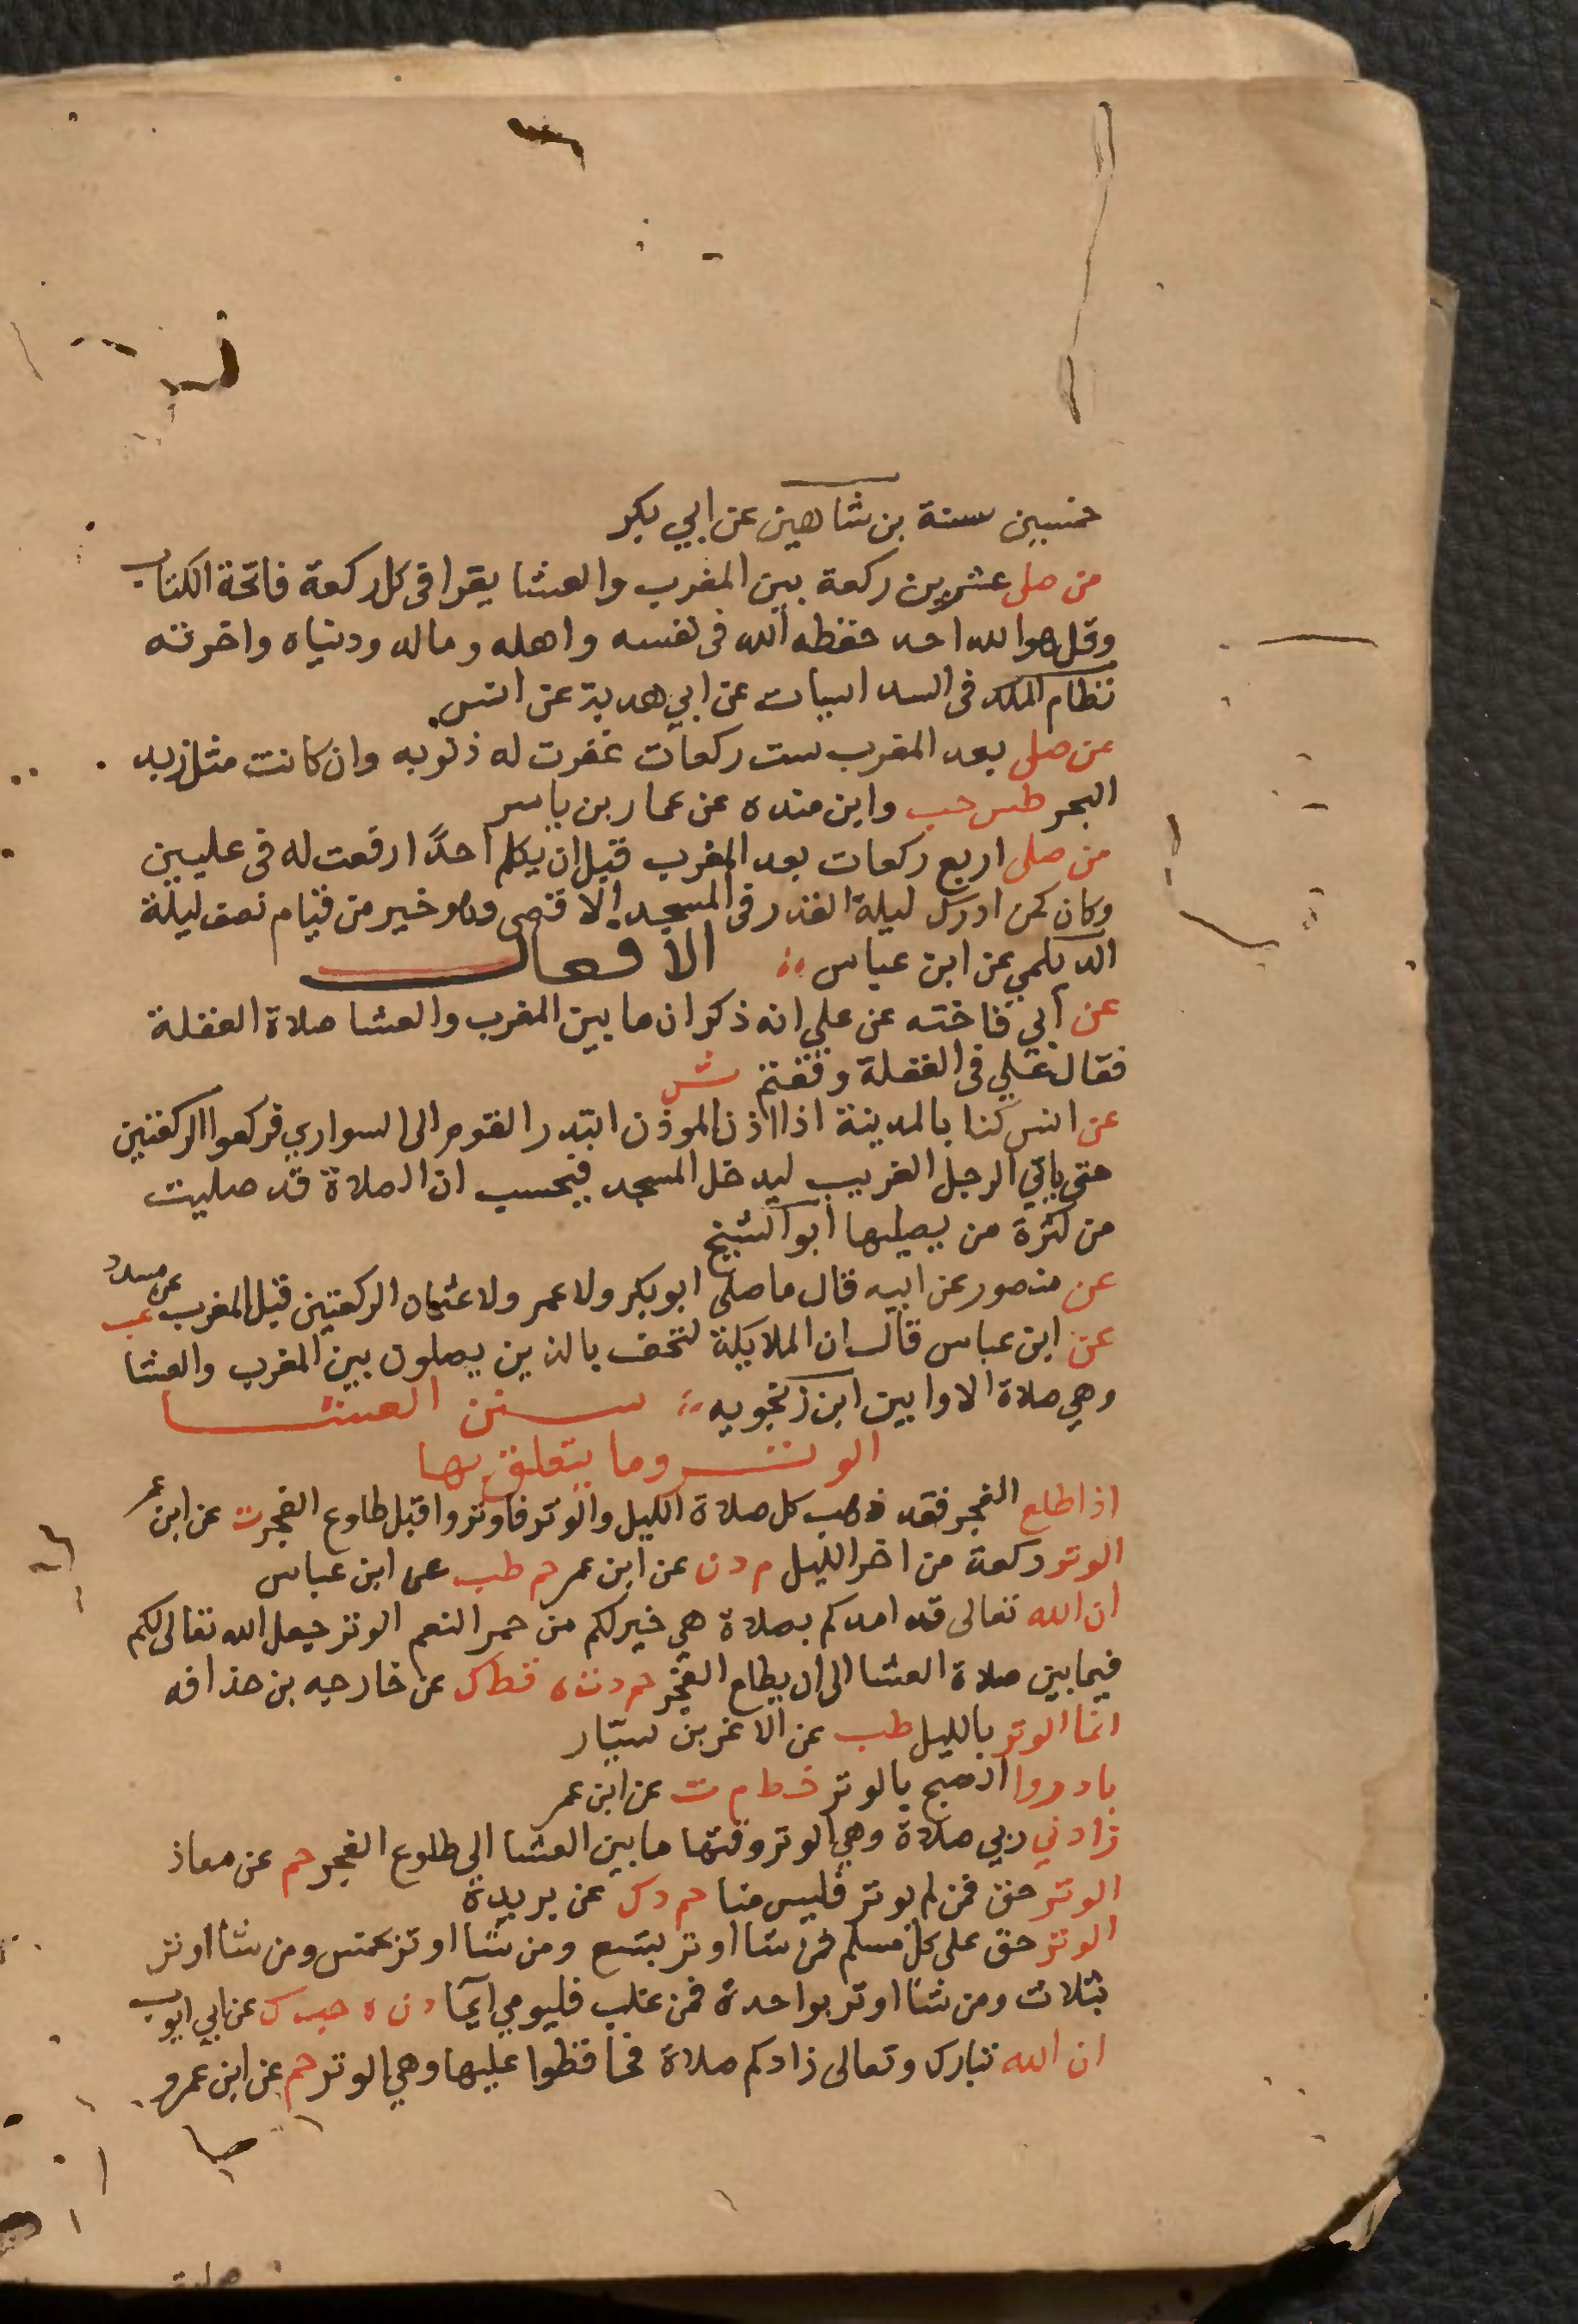 خمسين سنة بن شاهين عن ابي بكر
من صلى عشرين ركعة بين المغرب والعشا يقرا فى كل ركعة فاتحة الكتاب
وقل هو الله احد حفظه الله فى نفسه واهله وماله ودنياه واخرته
نظام الملك فى السداسيات عن ابي هدبة عن انس
من صلى بعد المغرب ست ركعات غفرت له ذنوبه وان كانت مثل زبد
البحر طس حب وابن منده عن عمار بن ياسر
من صلى اربع ركعات بعد المغرب قبل ان يكلم احدًا رفعت له فى عليين
وكان كمن ادرك ليلة القدر فى المسجد الاقصى وهو خير من قيام نصف ليلة
الديلمي عن ابن عباس الافعال
عن ابي فاخته عن علي انه ذكر ان ما بين المغرب والعشا صلاة الغفلة
فقال علي فى الغفلة وقعتم ش
عن انس كنا بالمدينة اذا اذن الموذن ابتدر القوم الى السواري فركعوا الركعتين
حتى ياتي الرجل الغريب ليدخل المسجد فيحسب ان الصلاة قد صليت
من كثرة من يصليها ابو الشيخ
عن منصور عن ابيه قال ما صلى ابو بكر ولا عمر ولا عثمان الركعتين قبل المغرب عب
عن ابن عباس قال ان الملايكة لتحف بالذين يصلون بين المغرب والعشا
وهي صلاة الاوابين ابن زنجويه سنن العشا
الوتر وما يتعلق بها
اذا طلع الفجر فقد ذهب كل صلاة الليل والوتر فاوتروا قبل طلوع الفجر ت عن ابن عمر
الوتر ركعة من اخر الليل م د ن عن ابن عمر حم طب عن ابن عباس
ان الله تعالى قد امدكم بصلاة هي خير لكم من حمر النعم الوتر جعل الله تعالى لكم
فيما بين صلاة العشا الى ان يطلع الفجر حم د ت ه قط ك عن خارجه بن حذافه
انما الوتر بالليل طب عن الاغر بن سيار
بادروا الصبح بالوتر خط م ت عن ابن عمر
زادني ربي صلاة وهي الوتر وقتها ما بين العشا الى طلوع الفجر حم عن معاذ
الوتر حق فمن لم يوتر فليس منا حم د ك عن بريدة
الوتر حق على كل مسلم فمن شا اوتر بسبع ومن شا اوتر بخمس ومن شا اوتر
بثلاث ومن شا اوتر بواحدة فمن غلب فليومي ايما د ن ه حب ك عن ابي ايوب
ان الله تبارك وتعالى زادكم صلاة فحافظوا عليها وهي الوتر حم عن ابن عمرو